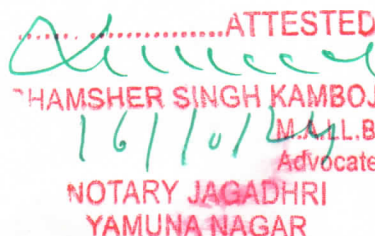 .................ATTESTED
HAMSHER SINGH KAMBOJ
16/10/24
M.A.LL.B
Advocate
NOTARY JAGADHRI
YAMUNA NAGAR